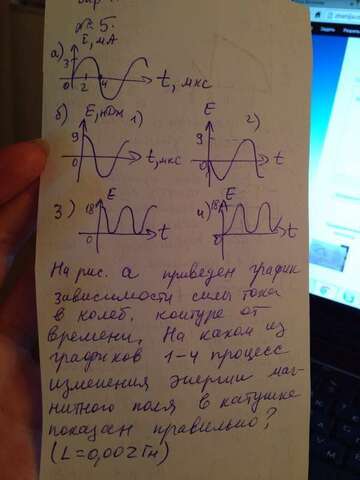 № 5.
а) I, мА
3
0 2 4 t, мкс
б) E, нДж 1)
9
0 t, мкс
2) E
9
0 t
3) E
18
0 t
4) E
18
0 t
На рис. а приведен график
зависимости силы тока
в колеб. контуре от
времени. На каком из
графиков 1-4 процесс
изменения энергии маг-
нитного поля в катушке
показан правильно?
(L=0,002Гн)